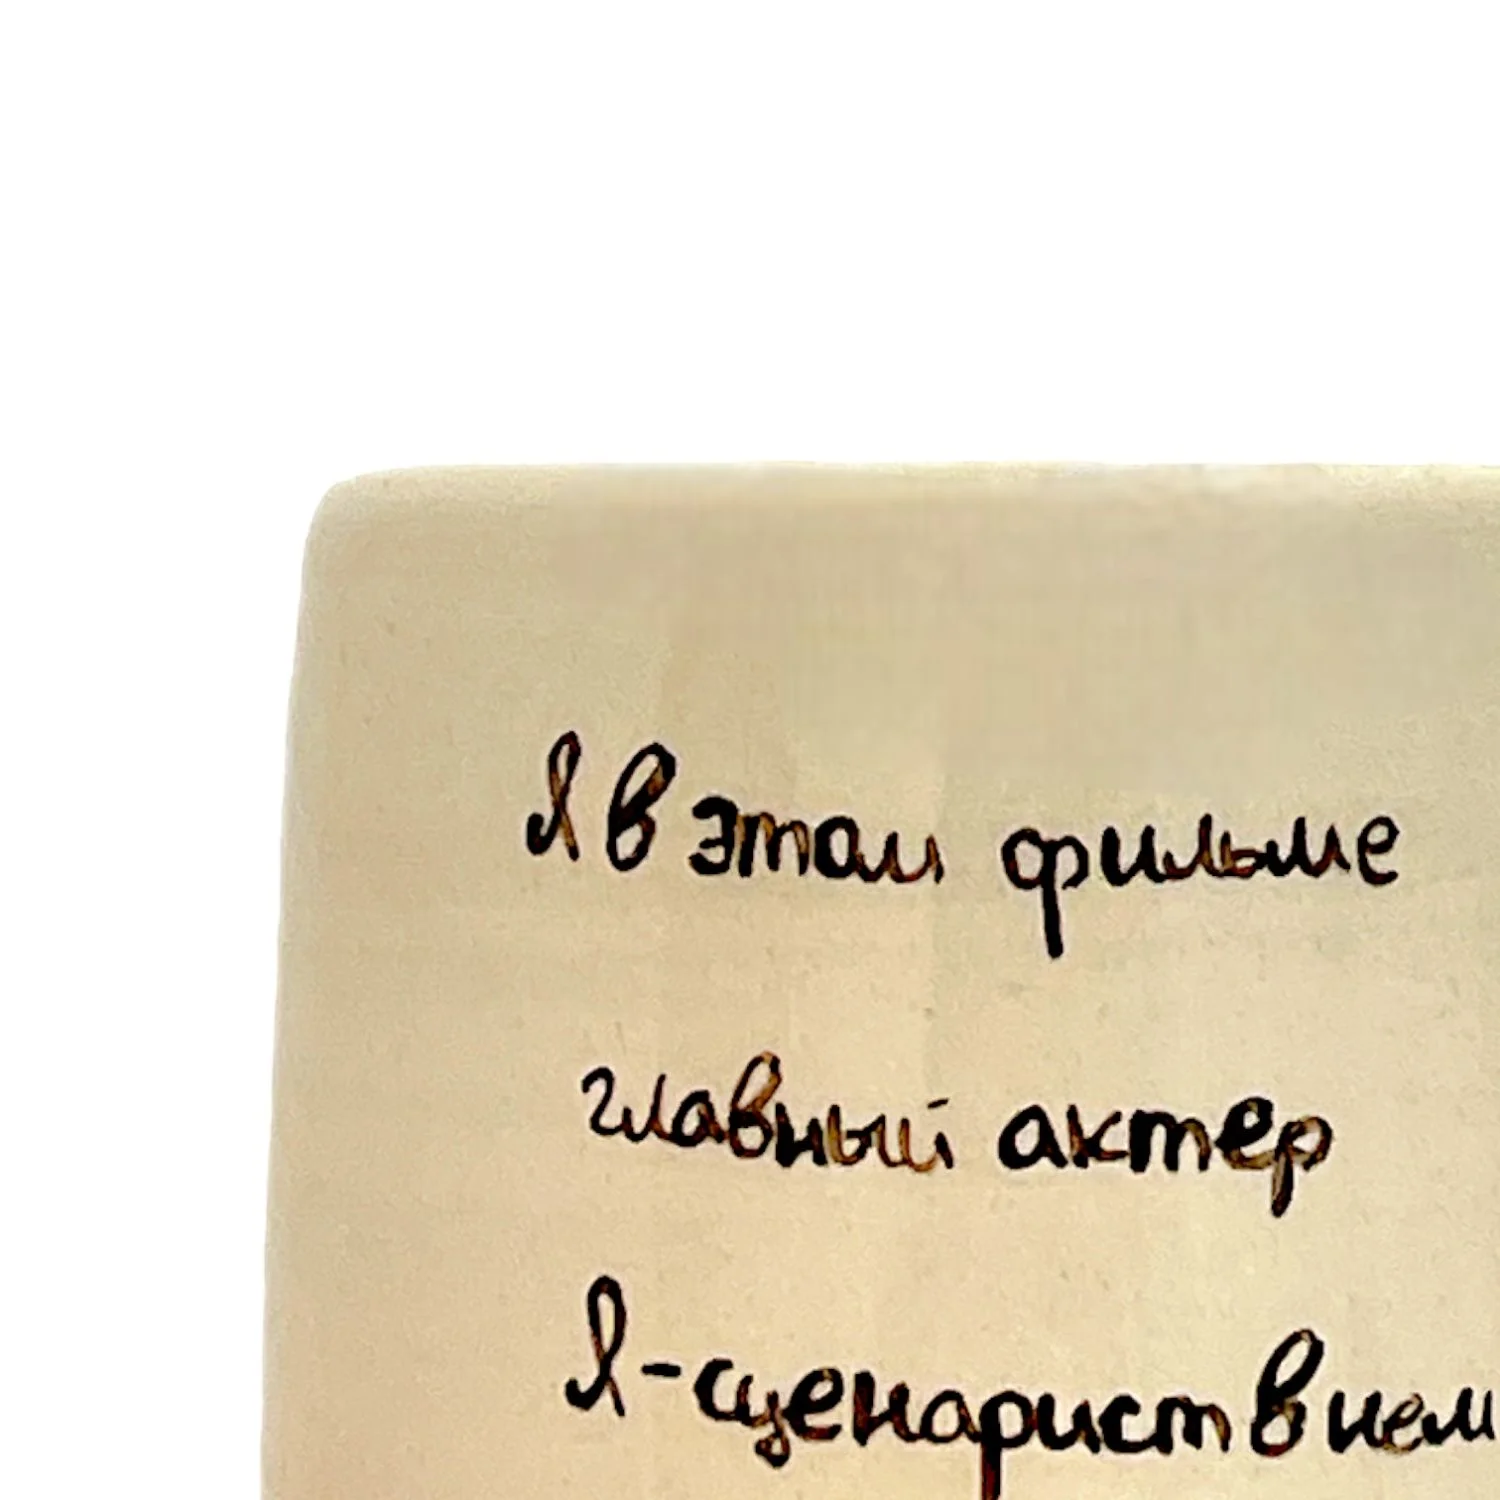 Я в этом фильме
главный актер
Я - сценарист в нем